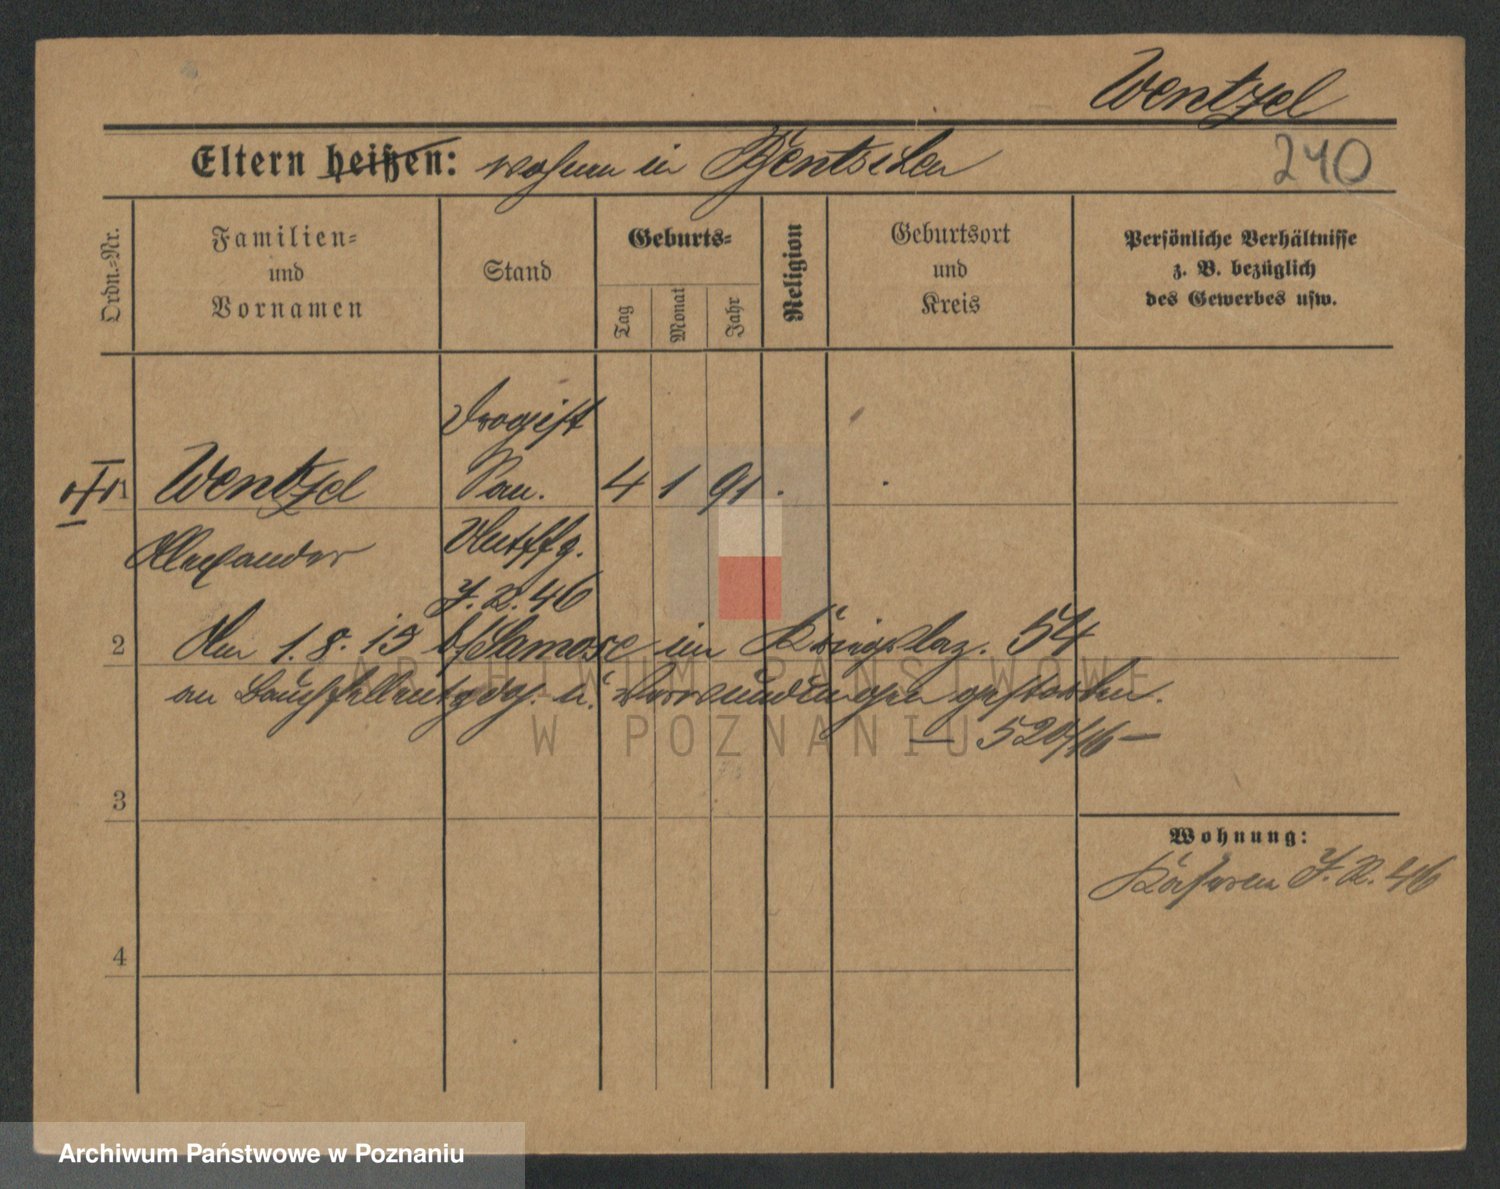 Wentzel
Eltern heißen: wohnen in Bentschen
240
Ordn.-Nr.
Familien-
und
Vornamen
Stand
Geburts-
Tag
Monat
Jahr
Religion
Geburtsort
und
Kreis
Persönliche Verhältnisse
z. B. bezüglich
des Gewerbes usw.
Drogist
1 Wentzel
San.
4 1 91
Alexander
Untffz.
J. R. 46
2 Am 1.8.15 b/ Samosc im Kriegslaz. 54
an Bauch u. gestorben.
— 520/16 —
3
Wohnung:
Kasernen J. R. 46
4
ARCHIWUM PAŃSTWOWE
W POZNANIU
Archiwum Państwowe w Poznaniu